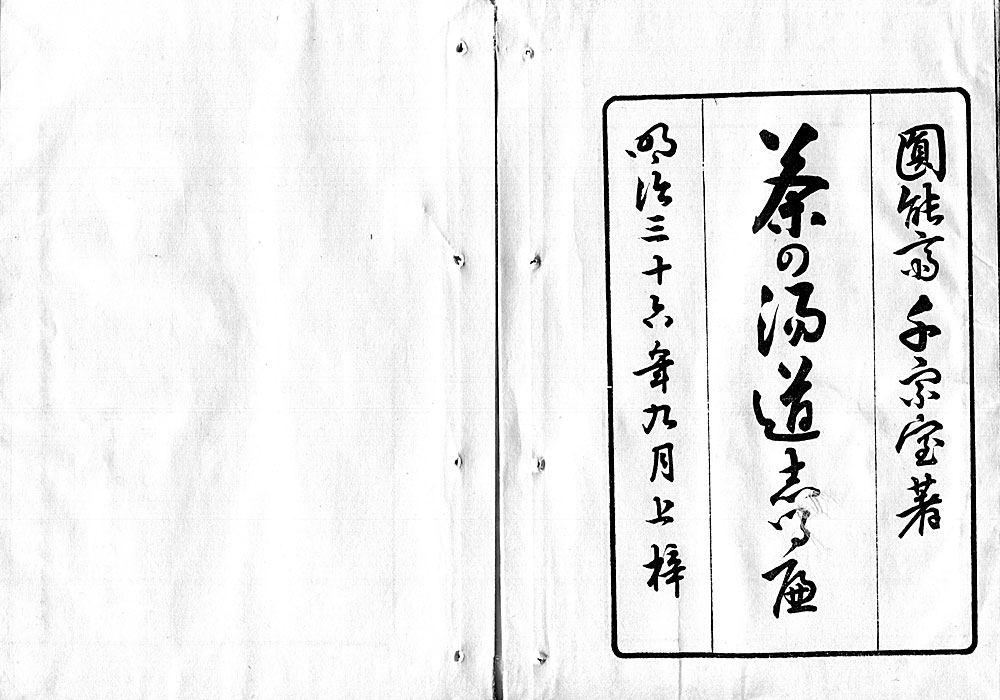 圓能斎千宗室著
茶の湯道志る邊
明治三十六年九月上梓